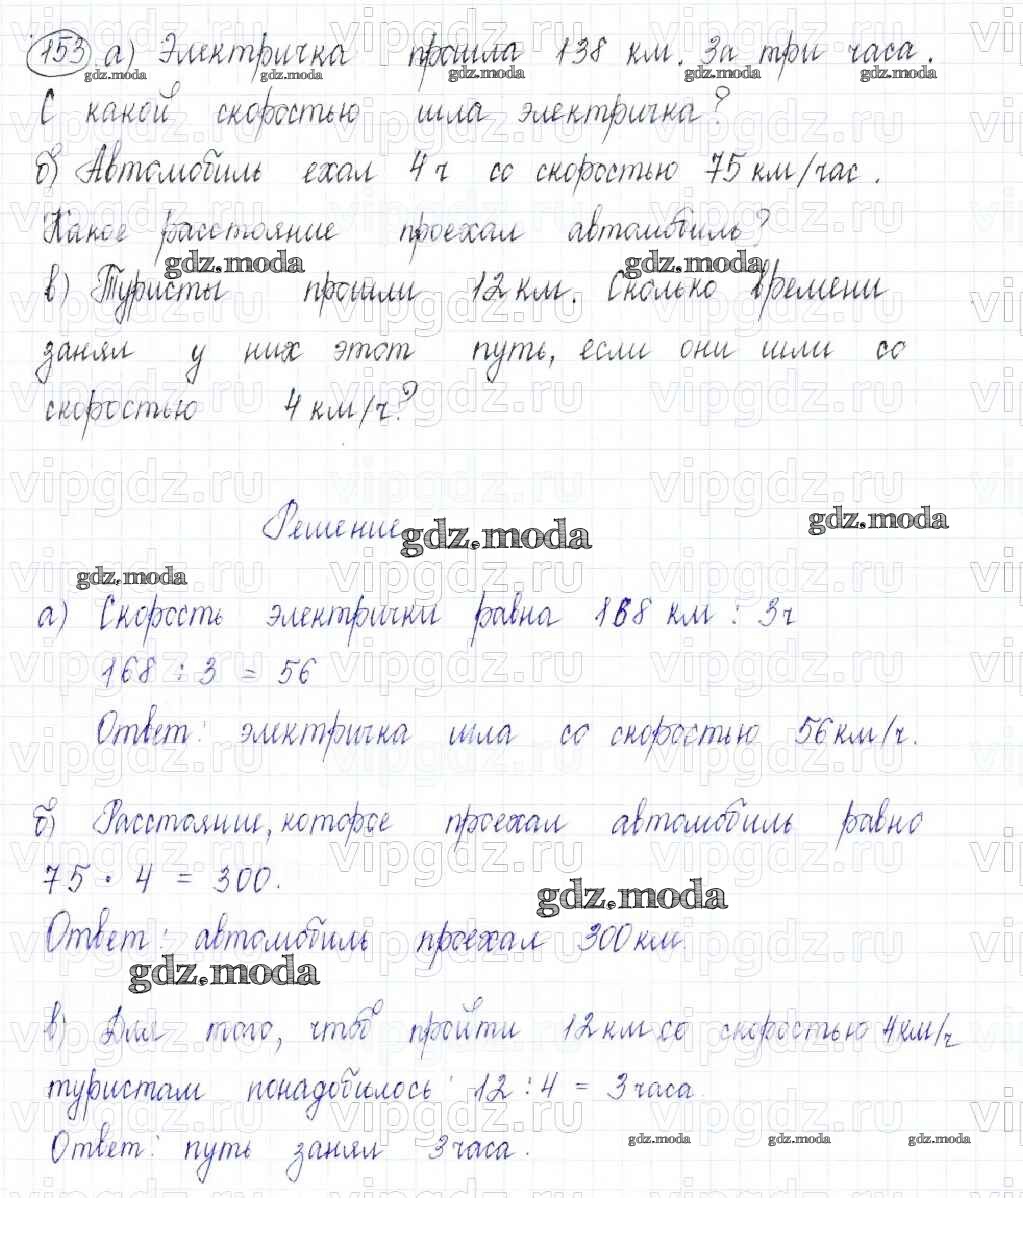 153 а) Электричка прошла 138 км. За три часа.
С какой скоростью шла электричка?
б) Автомобиль ехал 4 ч со скоростью 75 км/час.
Какое расстояние проехал автомобиль?
в) Туристы прошли 12 км. Сколько времени
занял у них этот путь, если они шли со
скоростью 4 км/ч?
Решение
а) Скорость электрички равна 168 км : 3ч
168 : 3 = 56
Ответ: электричка шла со скоростью 56 км/ч.
б) Расстояние, которое проехал автомобиль равно
75 · 4 = 300.
Ответ: автомобиль проехал 300 км.
в) Для того, чтоб пройти 12 км со скоростью 4 км/ч
туристам понадобилось: 12 : 4 = 3 часа
Ответ: путь занял 3 часа.
gdz.moda
vipgdz.ru